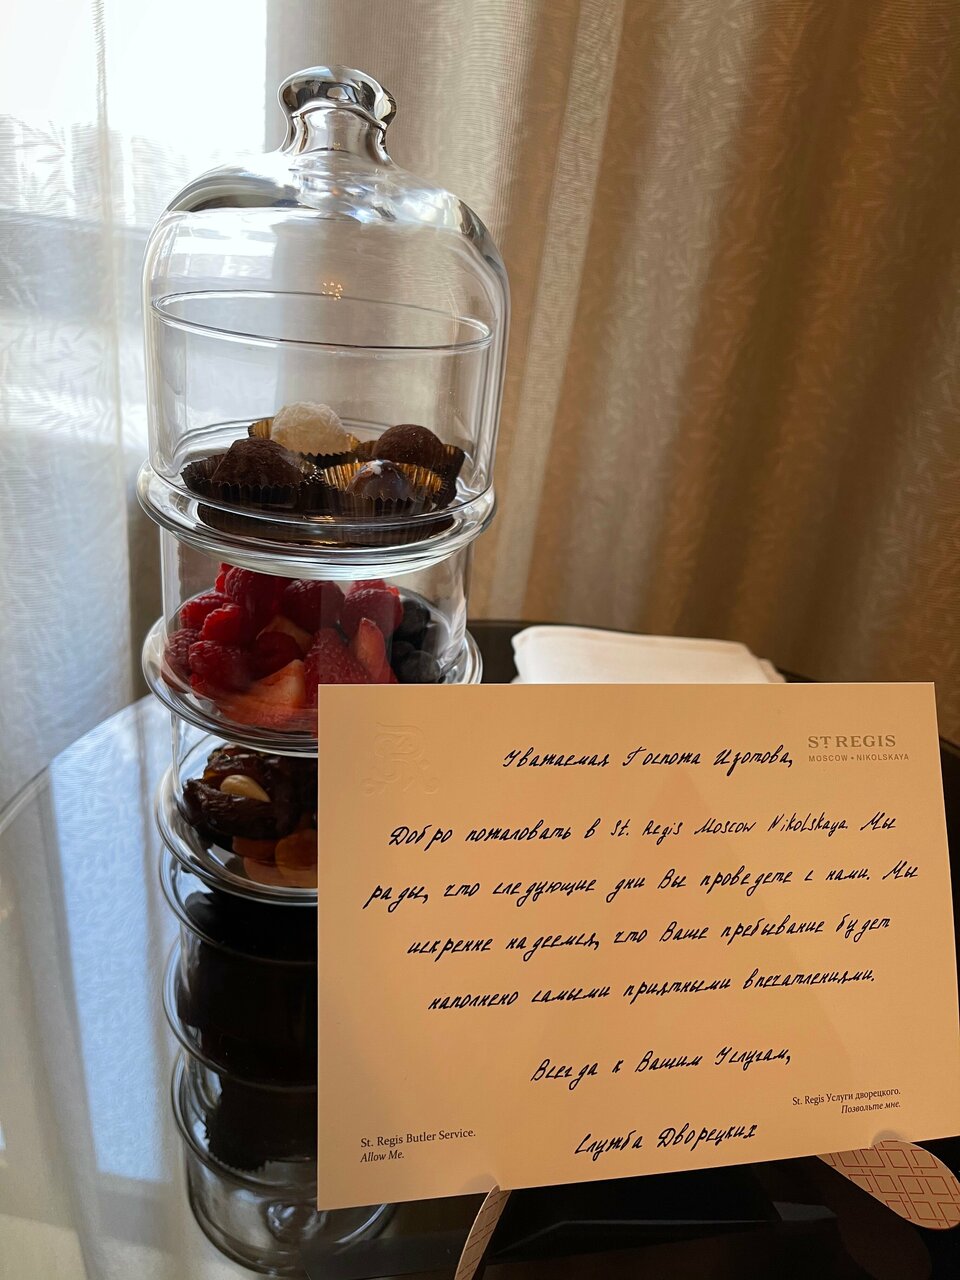 ST REGIS
MOSCOW • NIKOLSKAYA
Уважаемая Госпожа Изотова,
Добро пожаловать в St. Regis Moscow Nikolskaya. Мы
рады, что следующие дни Вы проведете с нами. Мы
искренне надеемся, что Ваше пребывание будет
наполнено самыми приятными впечатлениями.
Всегда к Вашим Услугам,
Служба Дворецких
St. Regis Butler Service.
Allow Me.
St. Regis Услуги дворецкого.
Позвольте мне.